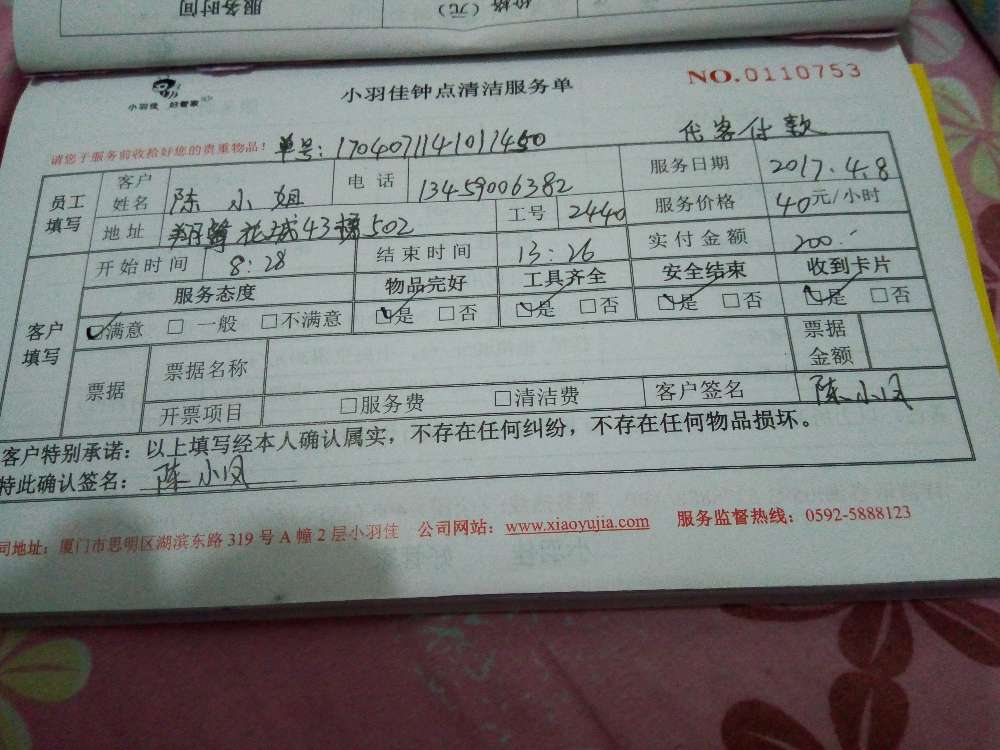 服务时间
价格（元）
小羽佳 好管家
小羽佳钟点清洁服务单
NO.0110753
请您于服务前收拾好您的贵重物品！
单号：
代客付款
员工填写 客户姓名 陈小姐 电话 13459006382 服务日期 2017.4.8
地址 翔鹭花城43幢502 工号 2440 服务价格 40元/小时
客户填写 开始时间 8:28 结束时间 13:26 实付金额 200.-
服务态度 物品完好 工具齐全 安全结束 收到卡片
☑满意 □一般 □不满意 ☑是 □否 ☑是 □否 ☑是 □否 ☑是 □否
票据 票据名称 票据金额
开票项目 □服务费 □清洁费 客户签名 陈小凤
客户特别承诺：以上填写经本人确认属实，不存在任何纠纷，不存在任何物品损坏。
特此确认签名：陈小凤
司地址：厦门市思明区湖滨东路319号A幢2层小羽佳 公司网站：www.xiaoyujia.com 服务监督热线：0592-5888123